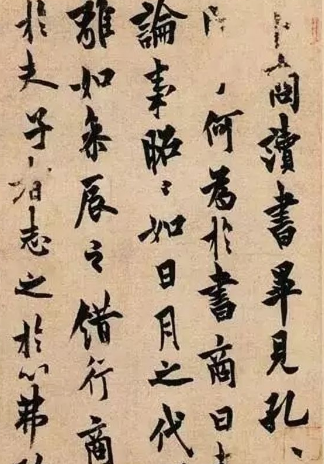 商讀書畢見孔
何為於書商曰
論事昭〻如日月之代
離如參辰之錯行商
於夫子者志之於心弗